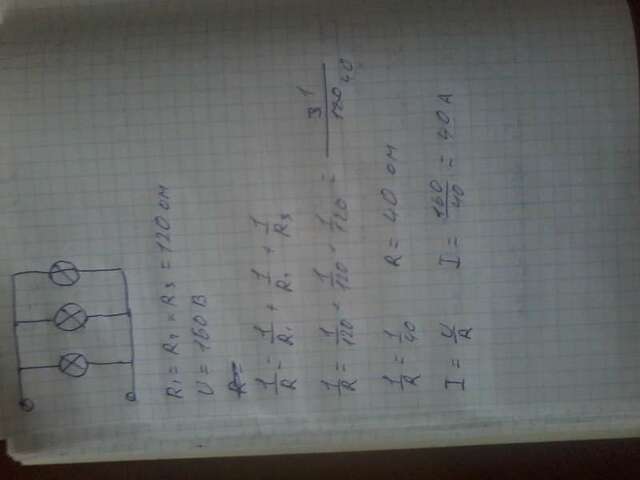 R₁ = R₂ = R₃ = 120 ом
U = 160 В
R =
1/R = 1/R₁ + 1/R₂ + 1/R₃
1/R = 1/120 + 1/120 + 1/120 = 3 1/120 40
1/R = 1/40 R = 40 ом
I = U/R I = 160/40 = 40 А